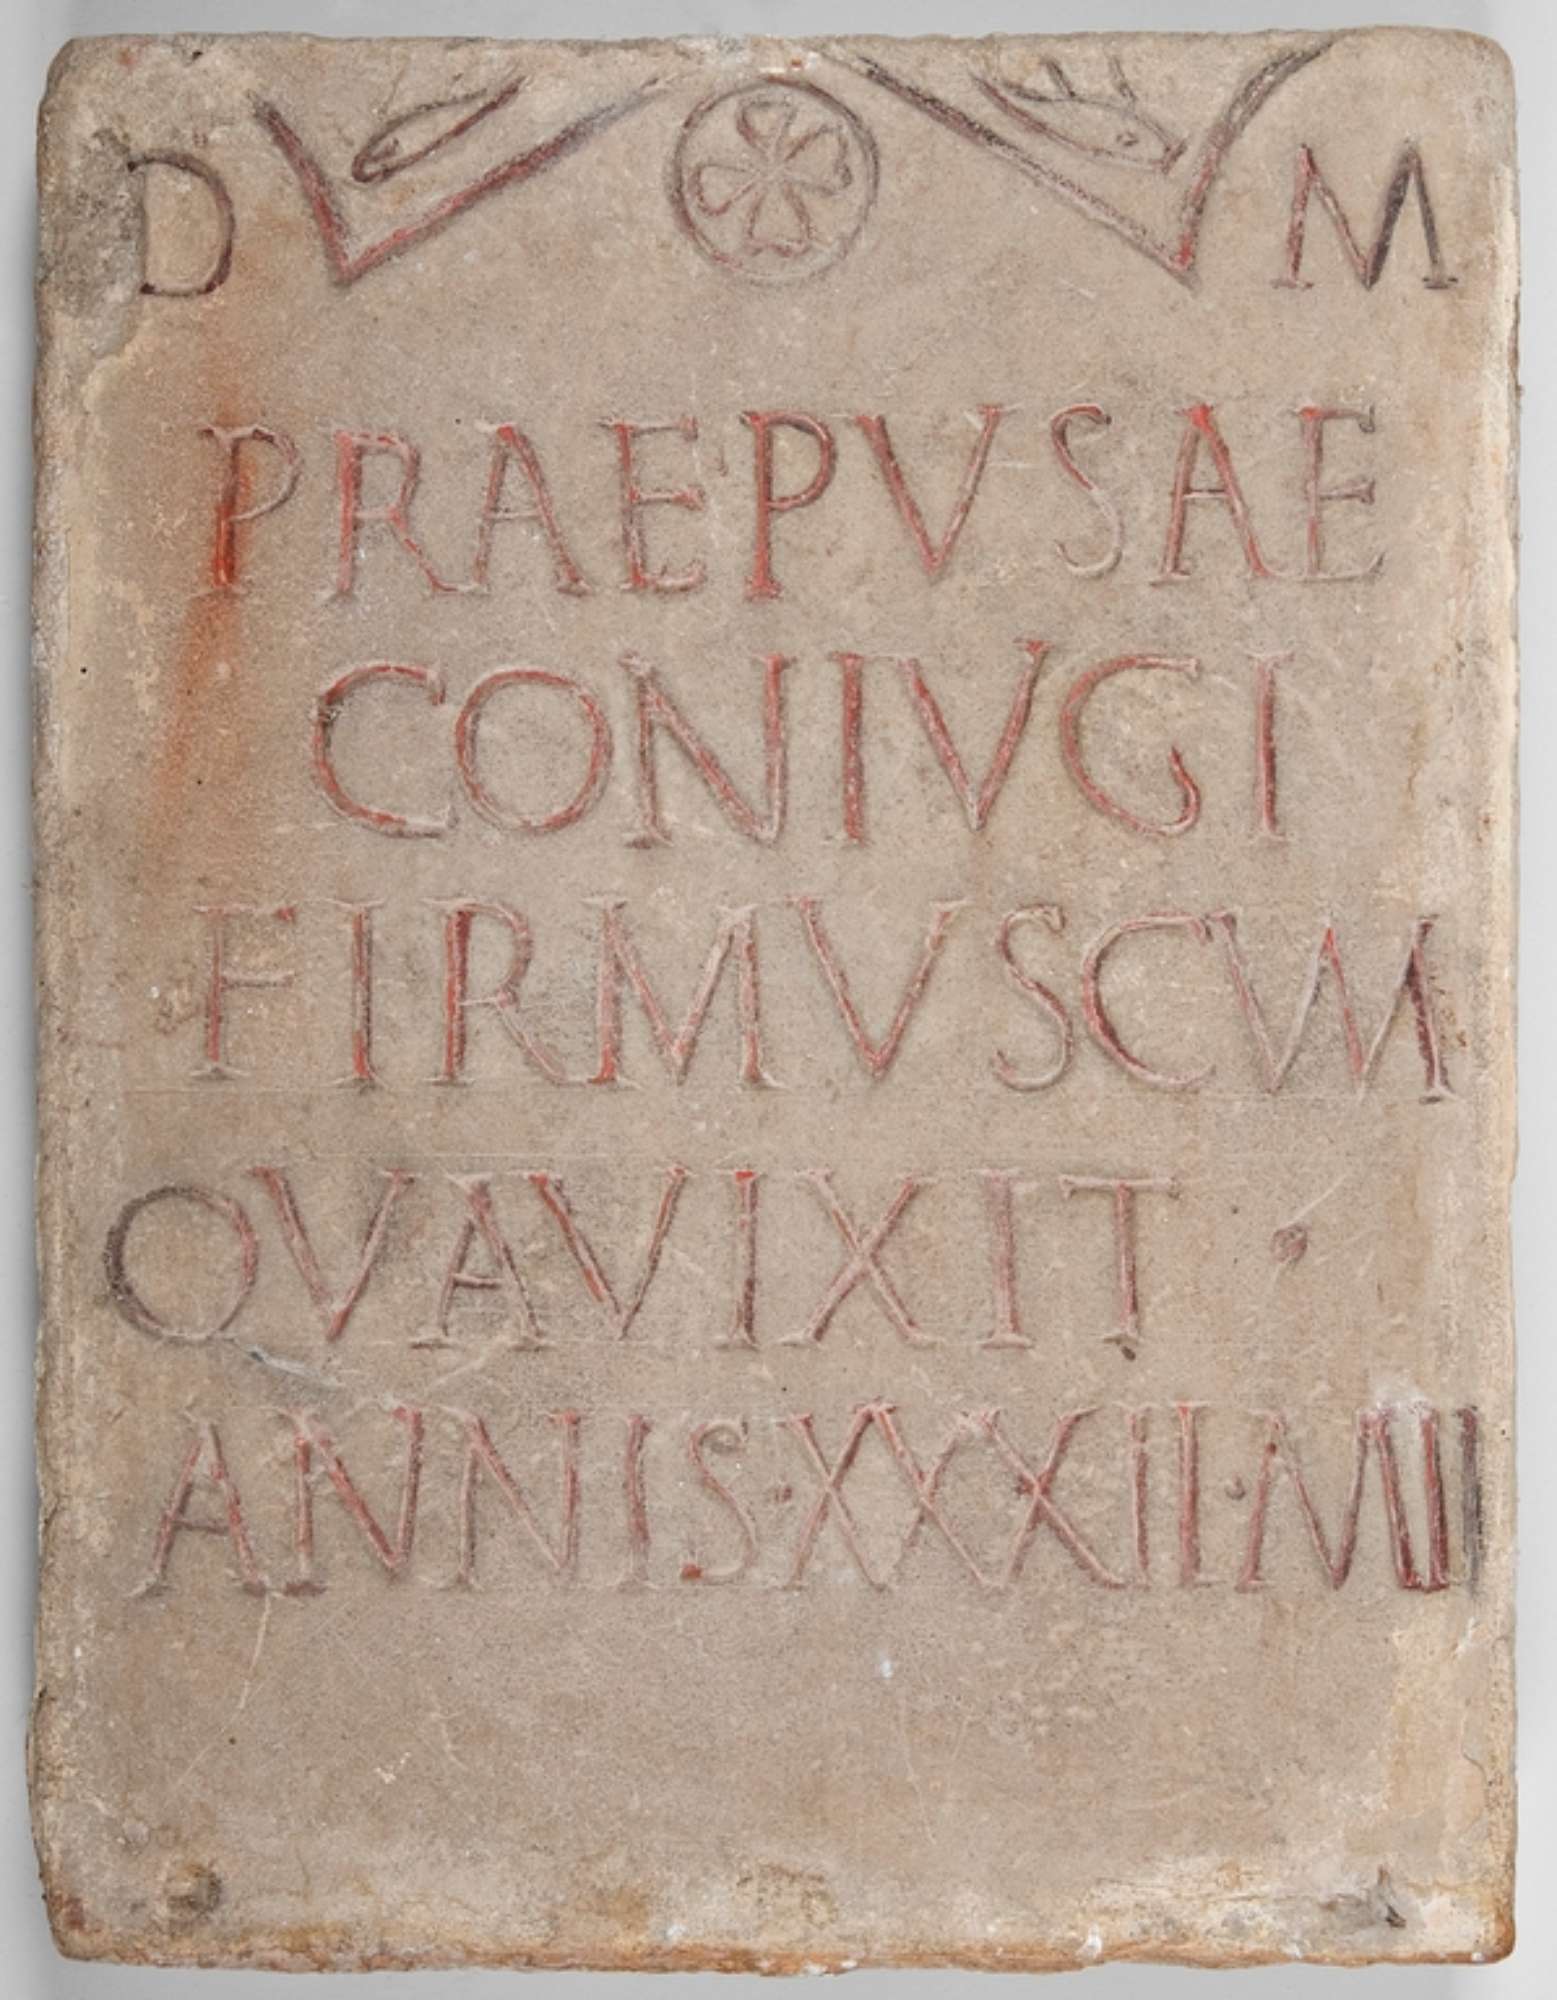 D M
PRAEPVSAE
CONIVGI
FIRMVSCVM
QVAVIXIT ·
ANNIS·XXXII·MIII